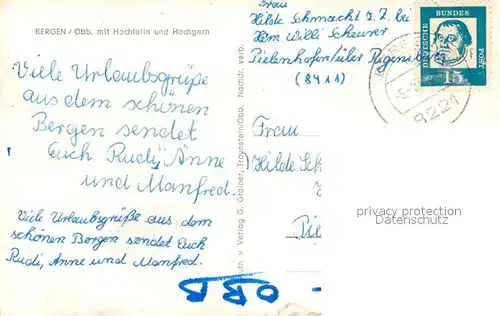 BERGEN / Obb. mit Hochfelln und Hochgern
Viele Urlaubsgrüße
aus dem schönen
Bergen sendet
Euch Rudi, Änne
und Manfred.
Viele Urlaubsgrüße aus dem
schönen Bergen sendet Euch
Rudi, Anne und Manfred.
Verlag G. Grainer, Traunstein/Obb. Nachdr. verb.
Frau
Hilde Schmacht z. Z. bei
Herrn Willi Scheurer
Pielenhofen/über Regensb
(8411)
DEUTSCHE BUNDES POST
15
8221
Frau
Hilde
privacy protection
Datenschutz